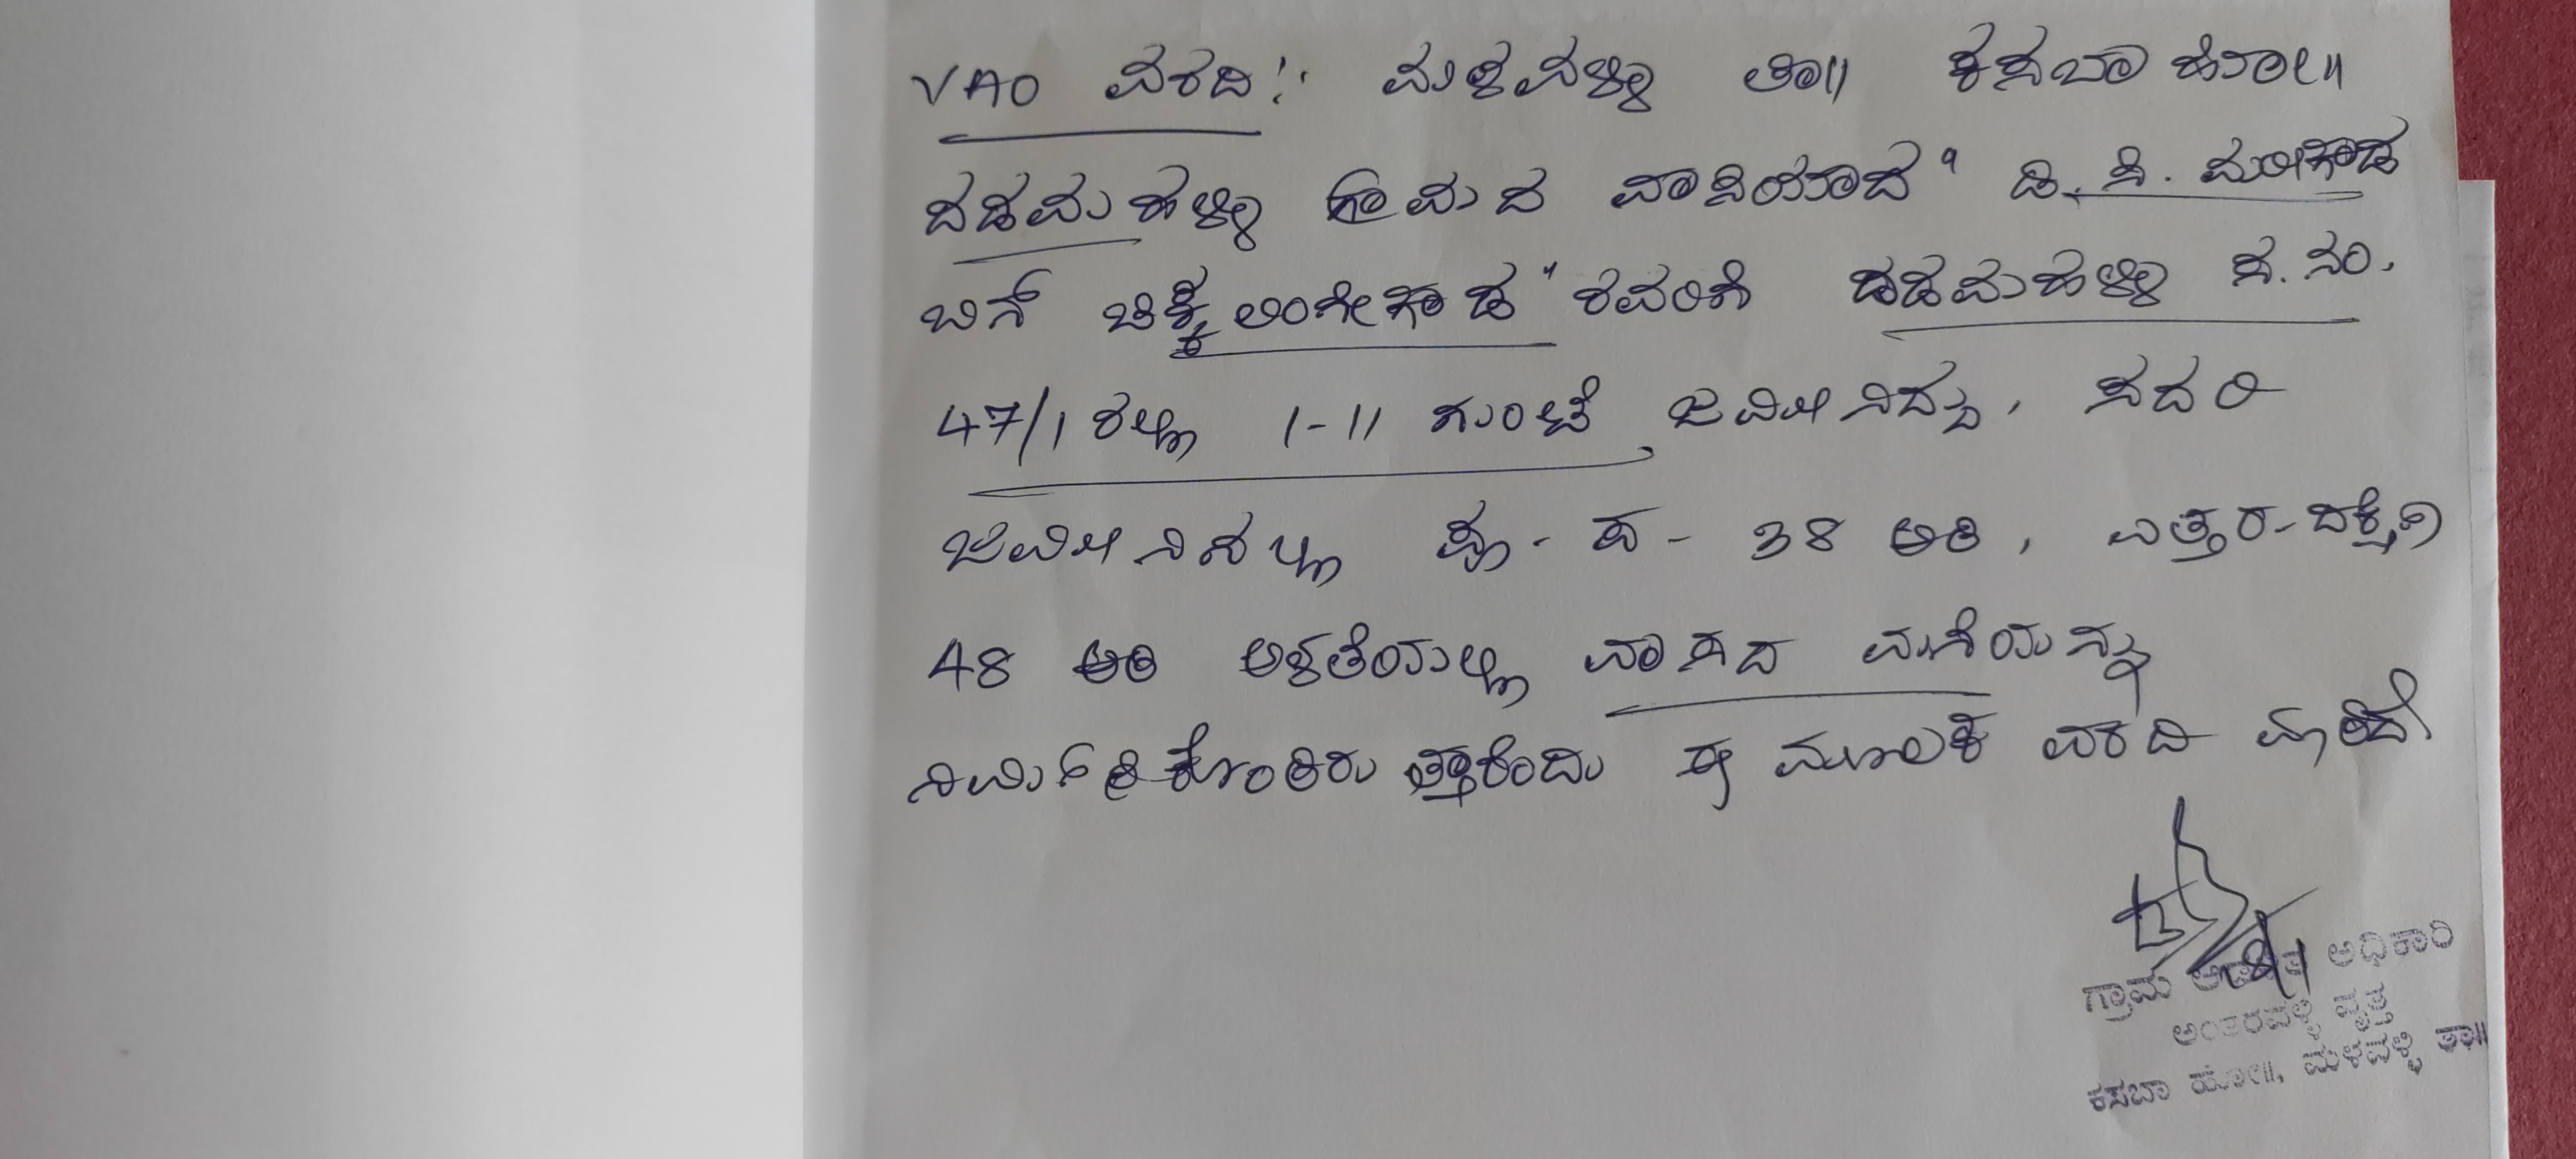 VAO ವರದಿ:: ಮಳವಳ್ಳಿ ತಾ|| ಕಸಬಾ ಹೋ||
ದಡಮಹಳ್ಳಿ ಗ್ರಾಮದ ವಾಸಿಯಾದ "ಡಿ. ಸಿ.
ಬಿನ್ ಚಿಕ್ಕಲಿಂಗೇಗೌಡ" ರವರಿಗೆ ದಡಮಹಳ್ಳಿ ಸ.ನಂ.
47/1 ರಲ್ಲಿ 1-11 ಗುಂಟೆ ಜಮೀನಿದ್ದು, ಸದರಿ
ಜಮೀನಿನಲ್ಲಿ ಪೂ-ಪ-38 ಅಡಿ, ಉತ್ತರ-ದಕ್ಷಿಣ
48 ಅಡಿ ಅಳತೆಯಲ್ಲಿ ವಾಸದ ಮನೆಯನ್ನು
ನಿರ್ಮಿಸಿಕೊಂಡಿರುತ್ತಾರೆಂದು ಈ ಮೂಲಕ ವರದಿ
ಗ್ರಾಮ ಆಡಳಿತ ಅಧಿಕಾರಿ
ಅಂತರವಳ್ಳಿ ವೃತ್ತ
ಕಸಬಾ ಹೋ||, ಮಳವಳ್ಳಿ ತಾ||